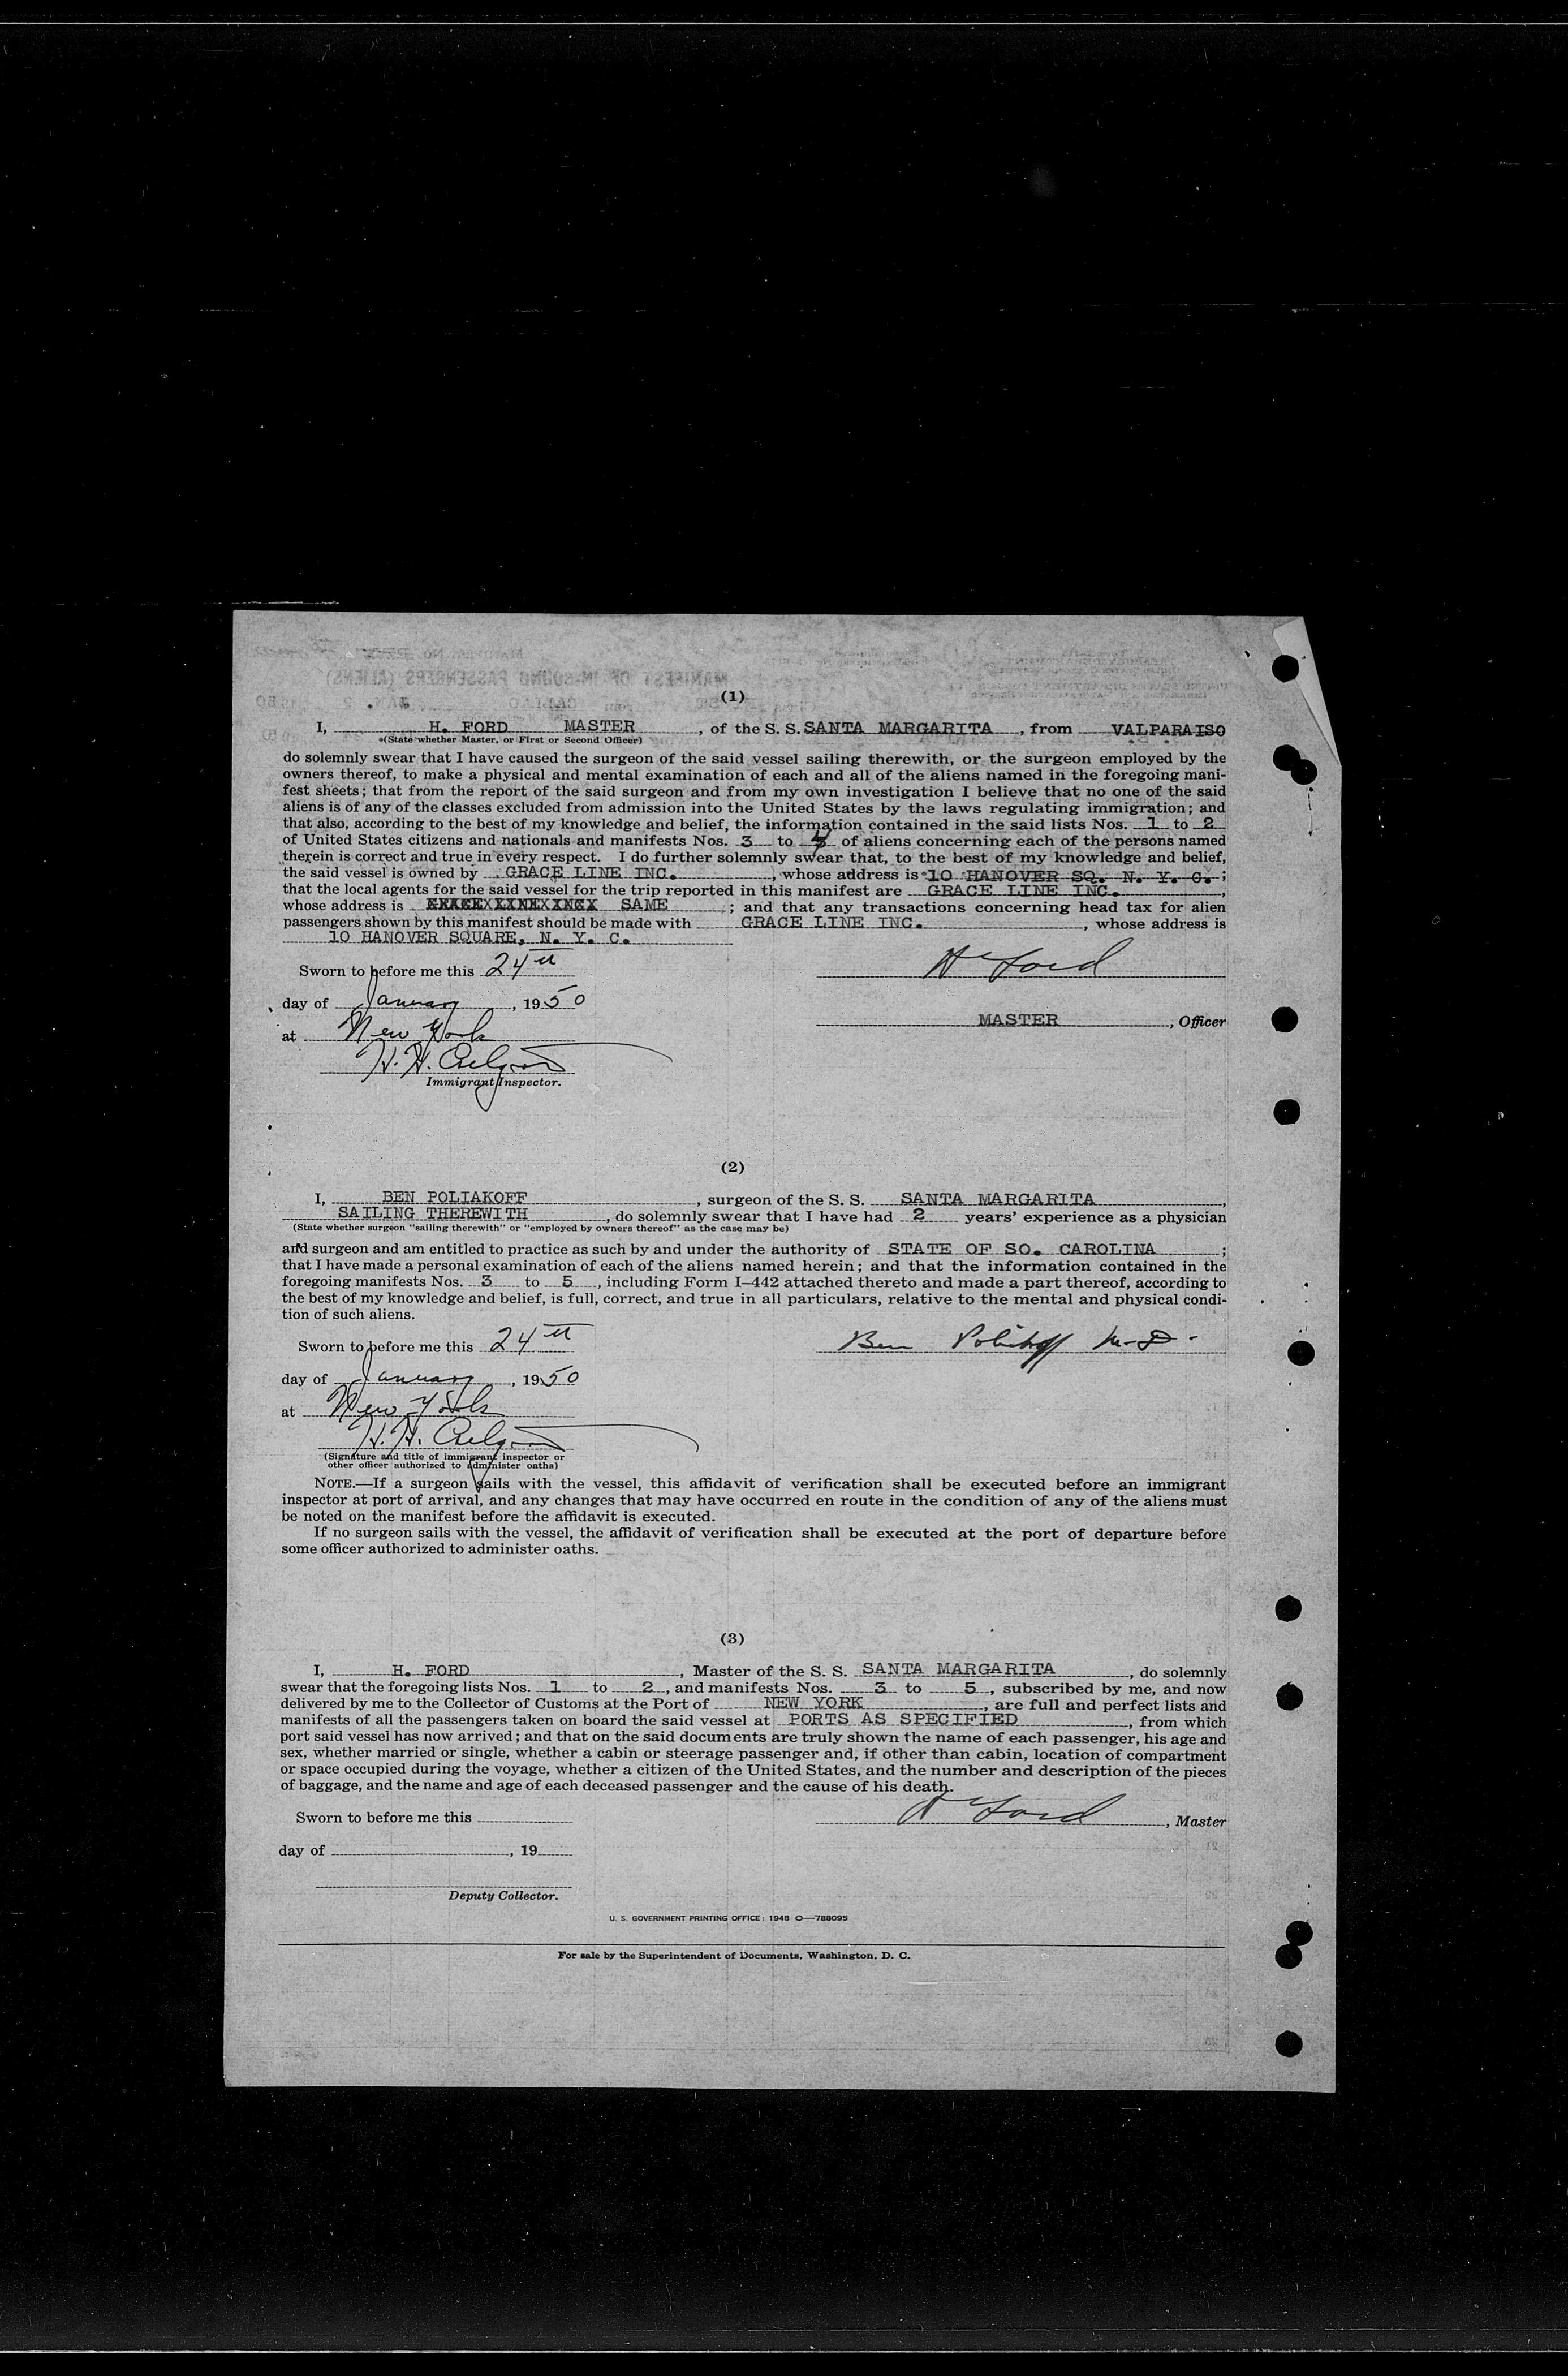 (1)
I, H. FORD MASTER, of the S. S. SANTA MARGARITA, from VALPARAISO
*(State whether Master, or First or Second Officer)
do solemnly swear that I have caused the surgeon of the said vessel sailing therewith, or the surgeon employed by the
owners thereof, to make a physical and mental examination of each and all of the aliens named in the foregoing mani-
fest sheets; that from the report of the said surgeon and from my own investigation I believe that no one of the said
aliens is of any of the classes excluded from admission into the United States by the laws regulating immigration; and
that also, according to the best of my knowledge and belief, the information contained in the said lists Nos. 1 to 2
of United States citizens and nationals and manifests Nos. 3 to of aliens concerning each of the persons named
therein is correct and true in every respect. I do further solemnly swear that, to the best of my knowledge and belief,
the said vessel is owned by GRACE LINE INC., whose address is 10 HANOVER SQ. N. Y. C.;
that the local agents for the said vessel for the trip reported in this manifest are GRACE LINE INC.,
whose address is SAME; and that any transactions concerning head tax for alien
passengers shown by this manifest should be made with GRACE LINE INC., whose address is
10 HANOVER SQUARE, N. Y. C.
Sworn to before me this 24th
H Ford
day of January, 1950
MASTER, Officer
at New York
H. H.
Immigrant Inspector.
(2)
I, BEN POLIAKOFF, surgeon of the S. S. SANTA MARGARITA,
SAILING THEREWITH, do solemnly swear that I have had 2 years' experience as a physician
(State whether surgeon "sailing therewith" or "employed by owners thereof" as the case may be)
and surgeon and am entitled to practice as such by and under the authority of STATE OF SO. CAROLINA;
that I have made a personal examination of each of the aliens named herein; and that the information contained in the
foregoing manifests Nos. 3 to 5, including Form I-442 attached thereto and made a part thereof, according to
the best of my knowledge and belief, is full, correct, and true in all particulars, relative to the mental and physical condi-
tion of such aliens.
Sworn to before me this 24th
Ben Poliakoff M-D-
day of January, 1950
at New York
H. H.
(Signature and title of immigrant inspector or
other officer authorized to administer oaths)
NOTE.—If a surgeon sails with the vessel, this affidavit of verification shall be executed before an immigrant
inspector at port of arrival, and any changes that may have occurred en route in the condition of any of the aliens must
be noted on the manifest before the affidavit is executed.
If no surgeon sails with the vessel, the affidavit of verification shall be executed at the port of departure before
some officer authorized to administer oaths.
(3)
I, H. FORD, Master of the S. S. SANTA MARGARITA, do solemnly
swear that the foregoing lists Nos. 1 to 2, and manifests Nos. 3 to 5, subscribed by me, and now
delivered by me to the Collector of Customs at the Port of NEW YORK, are full and perfect lists and
manifests of all the passengers taken on board the said vessel at PORTS AS SPECIFIED, from which
port said vessel has now arrived; and that on the said documents are truly shown the name of each passenger, his age and
sex, whether married or single, whether a cabin or steerage passenger and, if other than cabin, location of compartment
or space occupied during the voyage, whether a citizen of the United States, and the number and description of the pieces
of baggage, and the name and age of each deceased passenger and the cause of his death.
Sworn to before me this
H Ford, Master
day of , 19
Deputy Collector.
U. S. GOVERNMENT PRINTING OFFICE: 1948 O—788095
For sale by the Superintendent of Documents, Washington, D. C.